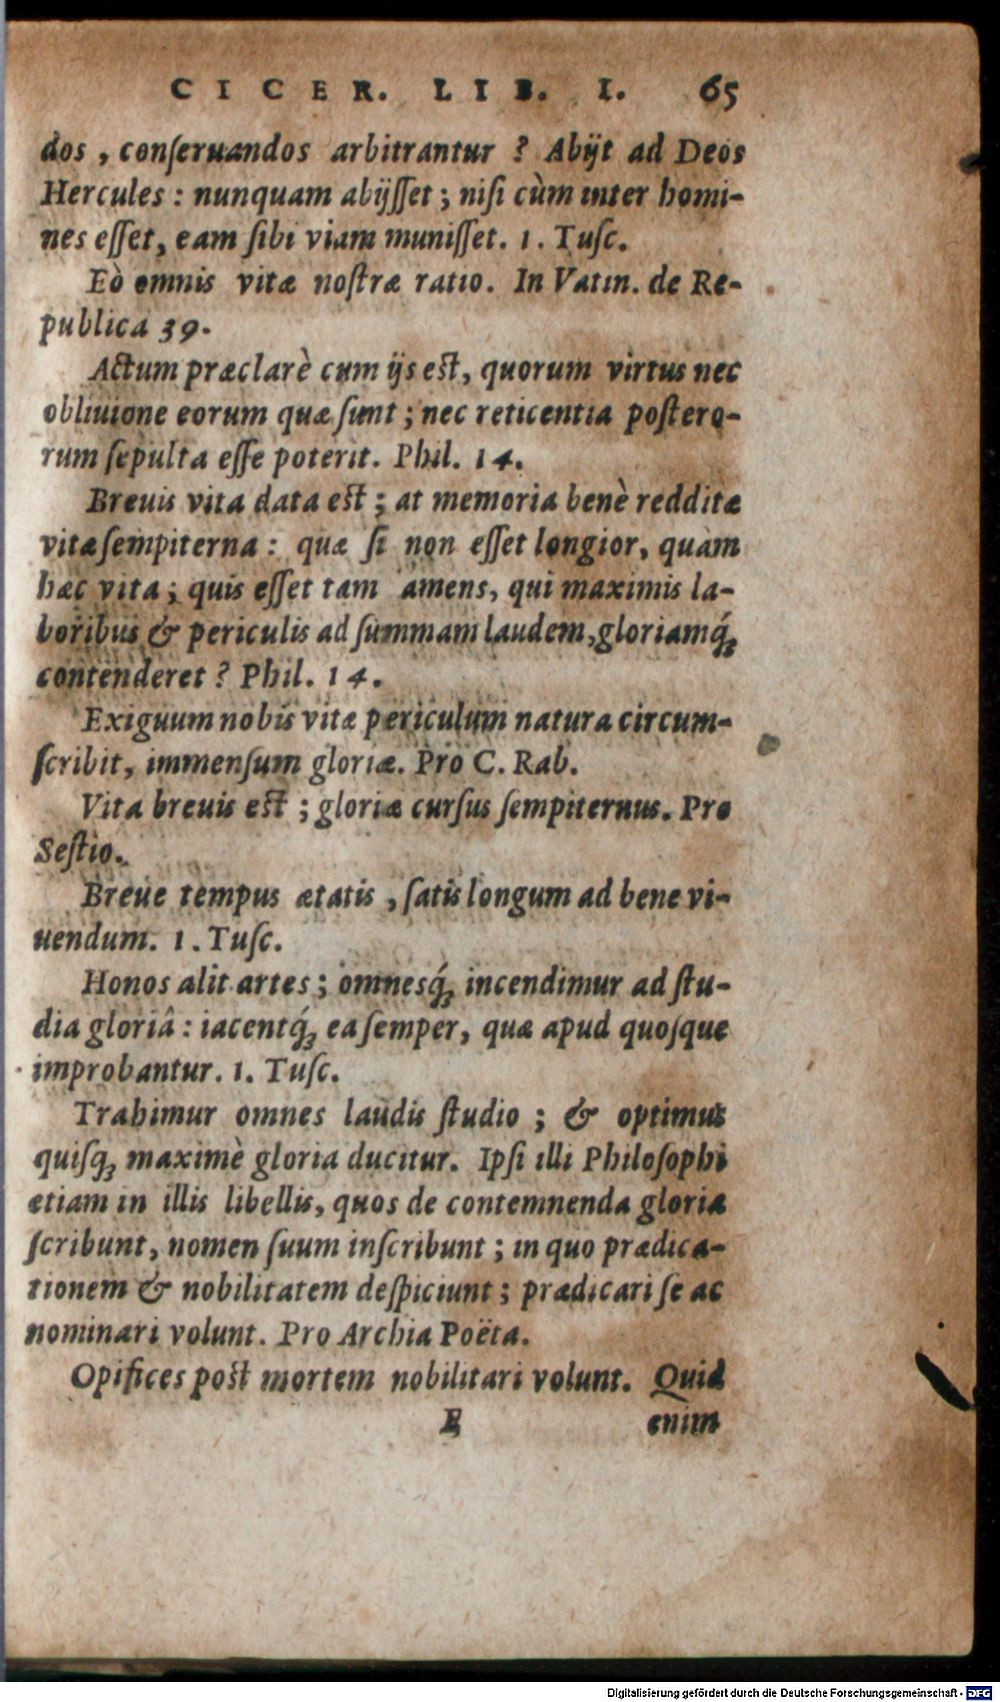 CICER. LIB. I. 65
dos, conſeruandos arbitrantur? Abijt ad Deos
Hercules: nunquam abijſſet; niſi cùm inter homi-
nes eſſet, eam ſibi viam muniſſet. 1. Tuſc.
Eò omnis vitæ noſtræ ratio. In Vatin. de Re-
publica 39.
Actum præclarè cum ijs est, quorum virtus nec
obliuione eorum quæ ſunt; nec reticentia poſtero-
rum ſepulta eſſe poterit. Phil. 14.
Breuis vita data est; at memoria benè redditæ
vitæ ſempiterna: quæ ſi non eſſet longior, quàm
hæc vita; quis eſſet tam amens, qui maximis la-
boribus & periculis ad ſummam laudem, gloriamq́;
contenderet? Phil. 14.
Exiguum nobis vitæ periculum natura circum-
ſcribit, immenſum gloriæ. Pro C. Rab.
Vita breuis est; gloriæ curſus ſempiternus. Pro
Seſtio.
Breue tempus ætatis, ſatis longum ad bene vi-
uendum. 1. Tuſc.
Honos alit artes; omnesq́; incendimur ad ſtu-
dia gloriâ: iacentq́; ea ſemper, quæ apud quoſque
improbantur. 1. Tuſc.
Trahimur omnes laudis ſtudio; & optimus
quiſq; maximè gloria ducitur. Ipſi illi Philoſophi
etiam in illis libellis, quos de contemnenda gloria
ſcribunt, nomen ſuum inſcribunt; in quo prædica-
tionem & nobilitatem deſpiciunt; prædicari ſe ac
nominari volunt. Pro Archia Poëta.
Opifices post mortem nobilitari volunt. Quid
E enim
Digitalisierung gefördert durch die Deutsche Forschungsgemeinschaft - DFG